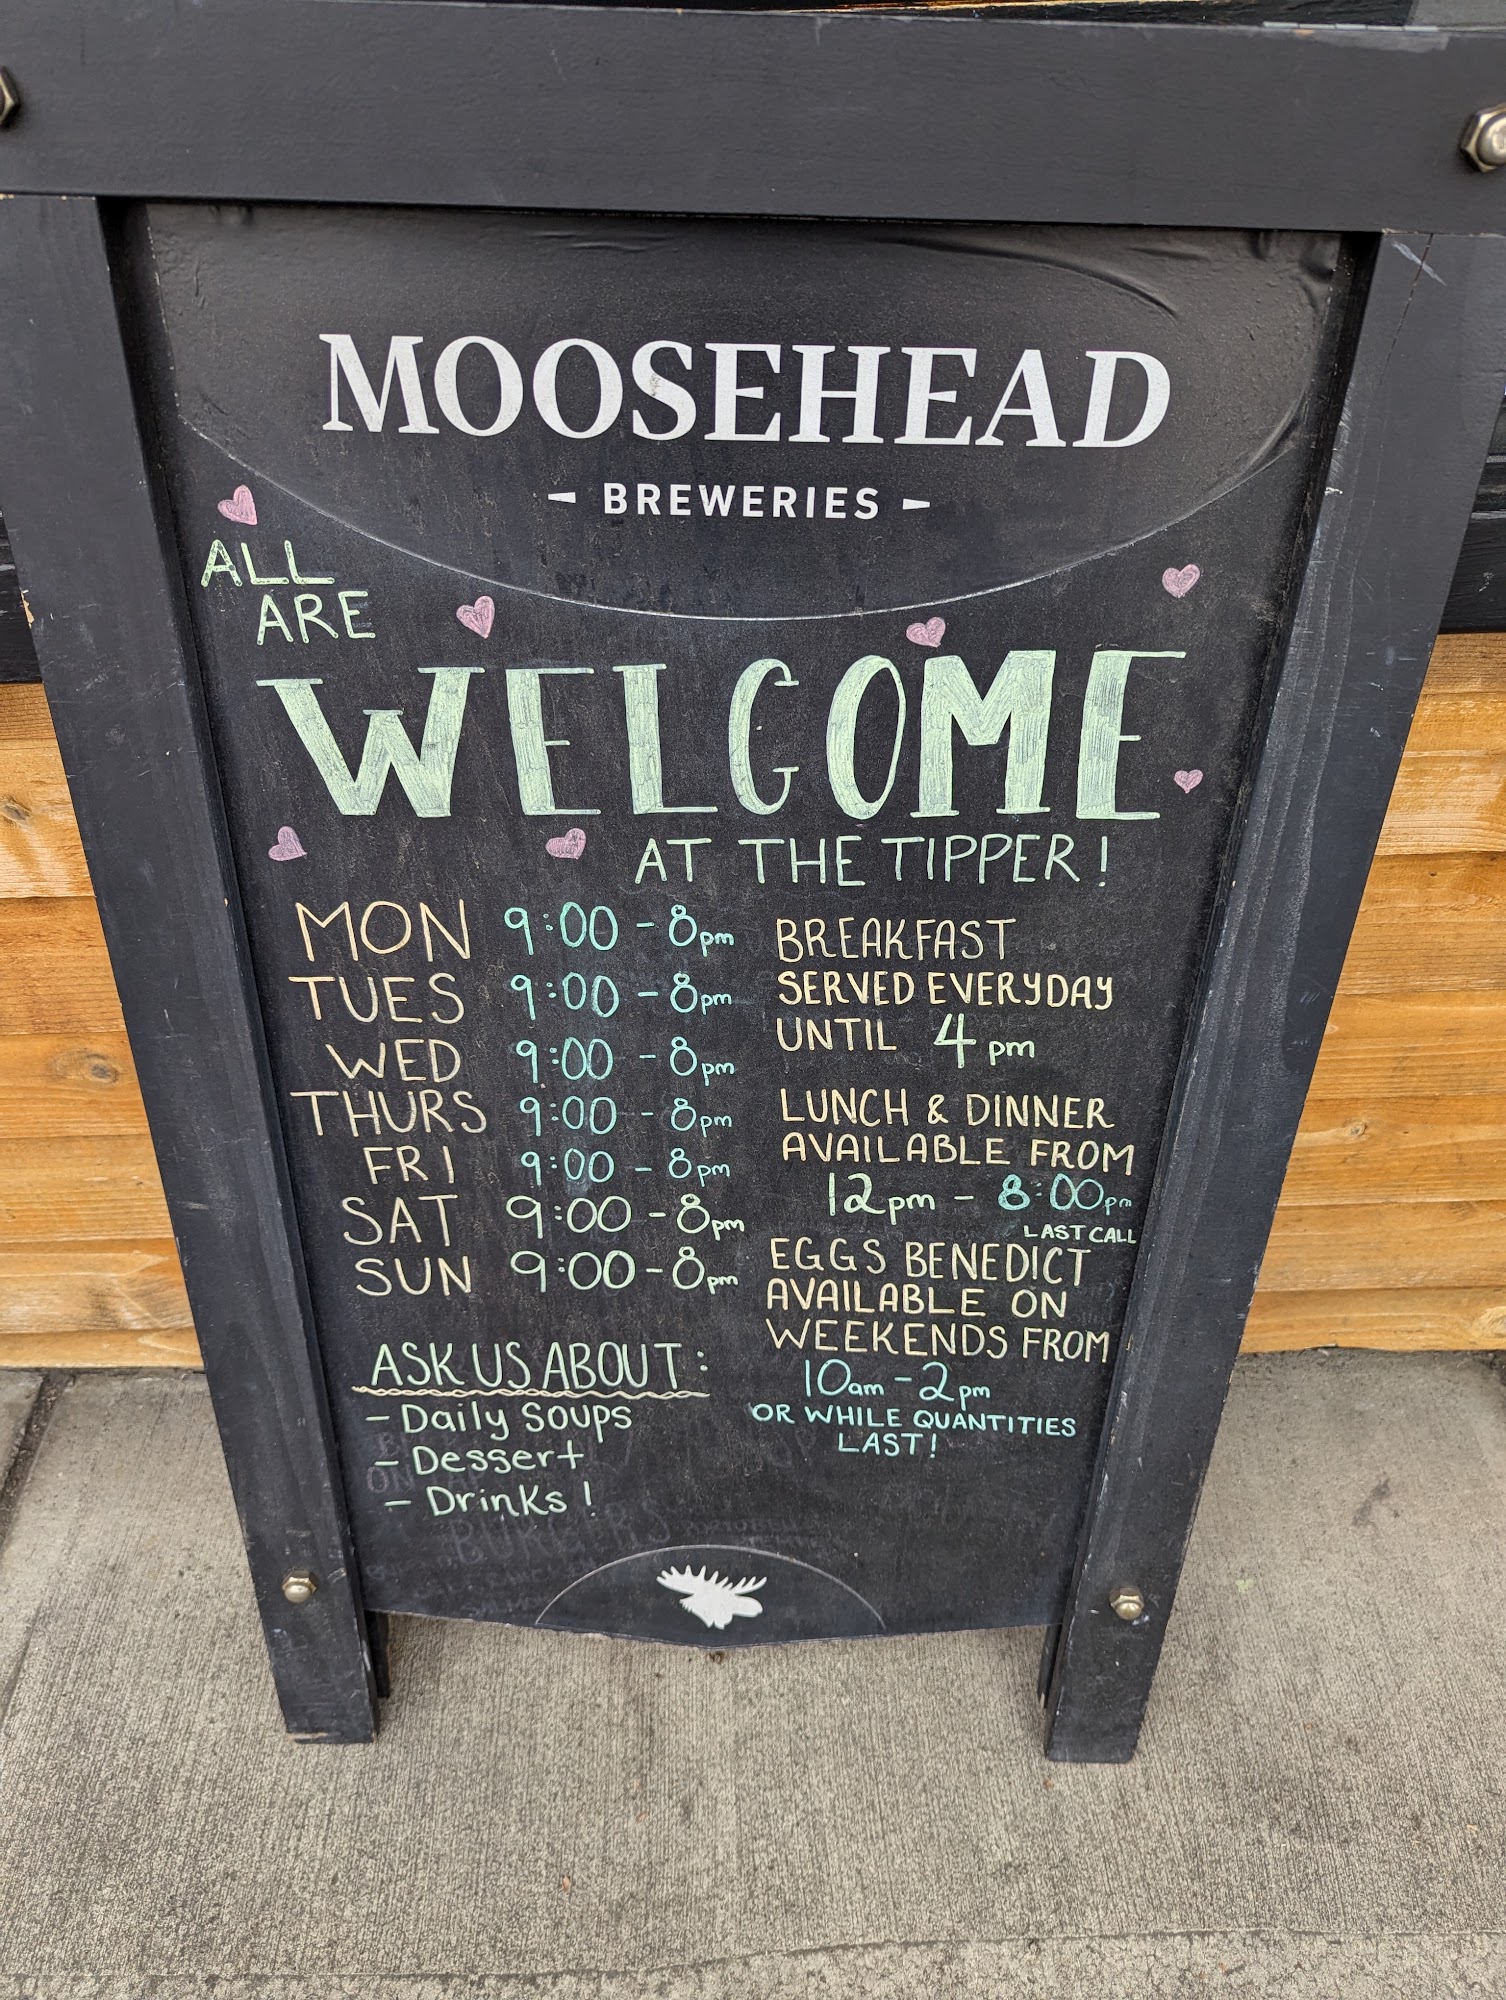 MOOSEHEAD
- BREWERIES -
ALL
ARE
WELCOME
AT THE TIPPER!
MON 9:00 - 8pm
TUES 9:00 - 8pm
WED 9:00 - 8pm
THURS 9:00 - 8pm
FRI 9:00 - 8pm
SAT 9:00 - 8pm
SUN 9:00 - 8pm
ASK US ABOUT:
- Daily Soups
- Dessert
- Drinks!
BREAKFAST
SERVED EVERYDAY
UNTIL 4pm
LUNCH & DINNER
AVAILABLE FROM
12pm - 8:00pm
LAST CALL
EGGS BENEDICT
AVAILABLE ON
WEEKENDS FROM
10am - 2pm
OR WHILE QUANTITIES
LAST!
BURGERS